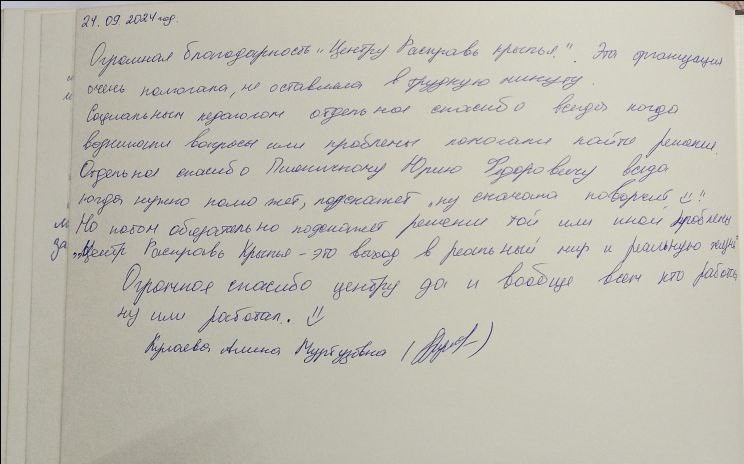 24.09.2024год.
Огромная благодарность "Центру Расправь крылья". Эта организация
очень помогала, не оставляла в трудную минуту.
Социальным педагогам отдельное спасибо всегда когда
возникали вопросы или проблемы помогали найти решение.
Отдельное спасибо Пшеничному Юрию Фёдоровичу всегда
когда нужно поможет, подскажет, ну сначала поворчит"!
Но потом обязательно подскажет решение той или иной проблемы
"Центр Расправь Крылья - это выход в реальный мир и реальную жизнь"
Огромное спасибо центру да и вообще всем кто работа
ну или работал.
Кулаева Амина Муртузовна